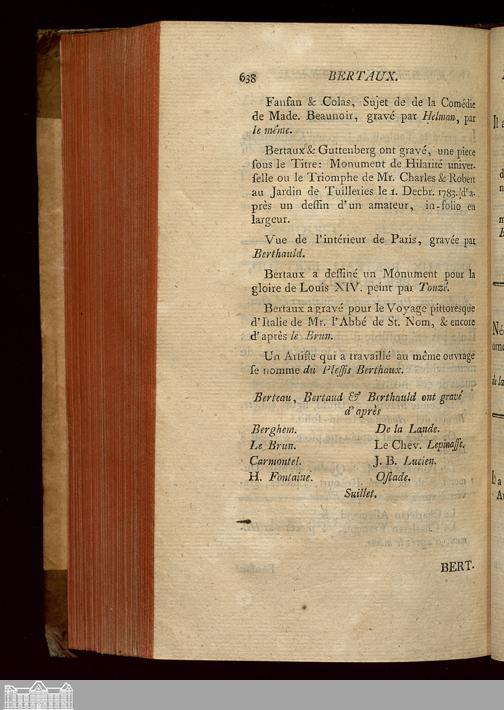 638 BERTAUX.
Fanfan & Colas, Sujet de de la Comédie
de Made. Beaunoir, gravé par Helman, par
le même.
Bertaux & Guttenberg ont gravé, une piece
sous le Titre: Monument de Hilarité univer-
selle ou le Triomphe de Mr. Charles & Robert
au Jardin de Tuilleries le 1. Decbr. 1783. d'a-
près un dessin d'un amateur, in-folio en
largeur.
Vue de l'intérieur de Paris, gravée par
Berthauld.
Bertaux a dessiné un Monument pour la
gloire de Louis XIV. peint par Touzé.
Bertaux a gravé pour le Voyage pittoresque
d'Italie de Mr. l'Abbé de St. Nom, & encore
d'après le Brun.
Un Artiste qui a travaillé au même ouvrage
se nomme du Plessis Berthaux.
Berteau, Bertaud & Berthauld ont gravé
d'après
Berghem. De la Lande.
Le Brun. Le Chev. Lepinasse.
Carmontel. J. B. Lucien.
H. Fontaine. Ostade.
Suillet.
BERT-